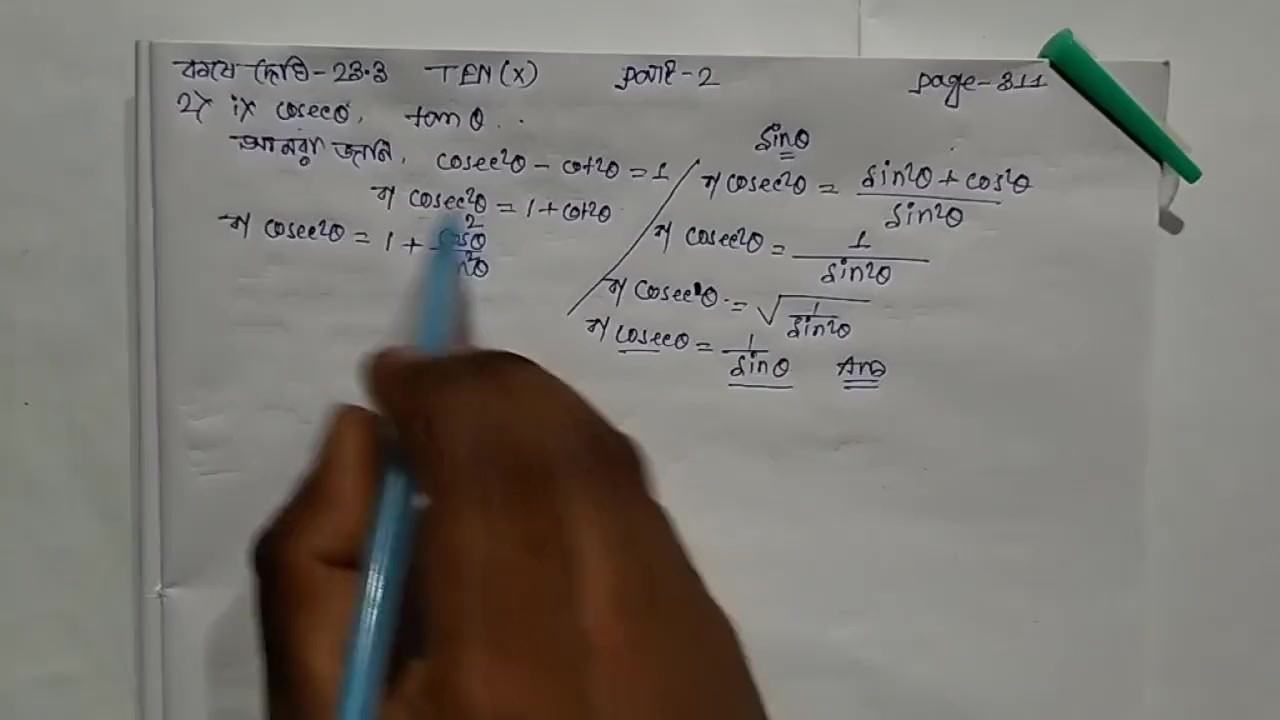 কষে দেখি - 23.3 TEN(X) part - 2 page - 311
2) i) cosecθ, tanθ..
আমরা জানি, cosec²θ - cot²θ = 1
বা cosec²θ = 1 + cot²θ
বা cosec²θ = 1 + cos²θ/sin²θ
sinθ
বা cosec²θ = sin²θ + cos²θ/sin²θ
বা cosec²θ = 1/sin²θ
বা cosecθ = √1/sin²θ
বা cosecθ = 1/sinθ Ans